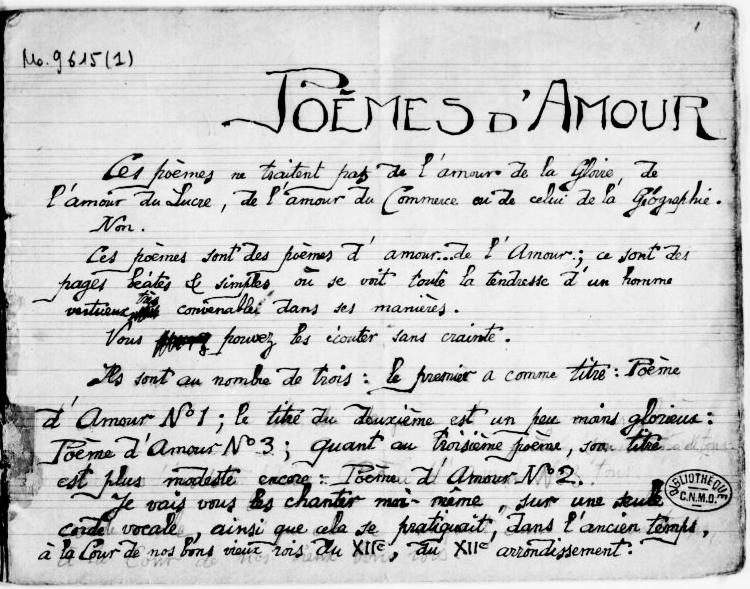 Mo. 9615(1)
1
POÈMES D'AMOUR
Ces poèmes ne traitent pas de l'amour de la Gloire, de
l'amour du Lucre, de l'amour du Commerce ou de celui de la Géographie.
Non.
Ces poèmes sont des poèmes d'amour...de l'Amour; ce sont des
pages béates & simples où se voit toute la tendresse d'un homme
vertueux très convenable dans ses manières.
Vous pouvez les écouter sans crainte.
Ils sont au nombre de trois: le premier a comme titre: Poème
d'Amour N°1; le titre du deuxième est un peu moins glorieux:
Poème d'Amour N°3; quant au troisième poème, son titre
est plus modeste encore: Poème d'Amour N°2.
Je vais vous les chanter moi-même, sur une seule
corde vocale, ainsi que cela se pratiquait, dans l'ancien temps,
à la Cour de nos bons vieux rois du XIIe, du XIIe arrondissement:
BIBLIOTHEQUE
C.N.M.D.